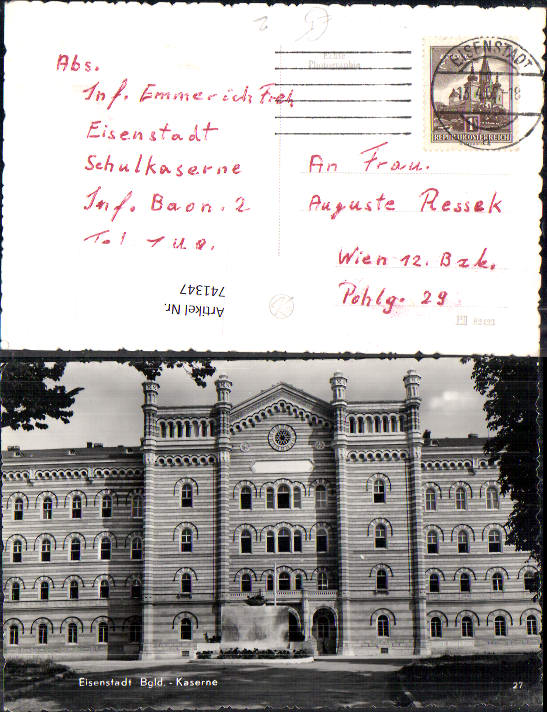 Abs.
Inf. Emmerich
Eisenstadt
Schulkaserne
Inf. Baon. 2
Echte
Photographie
EISENSTADT
REPUBLIK ÖSTERREICH
An Frau.
Auguste Ressek
Wien 12. Bzk.
Pohlg. 29
Artikel Nr.
741347
Eisenstadt Bgld. - Kaserne
27